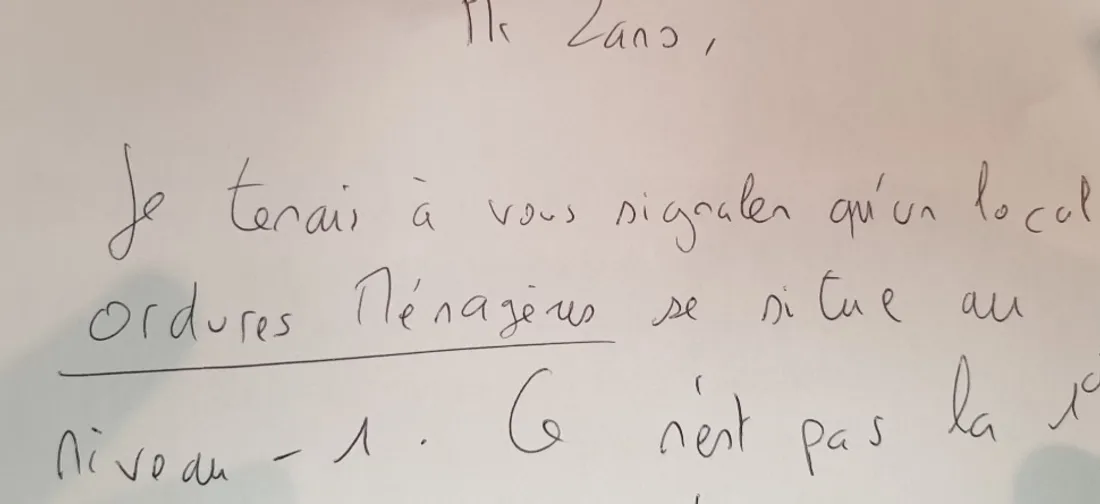 Mr Zano,
Je tenais à vous signaler qu'un local
ordures Ménagères se situe au
niveau -1. Ce n'est pas la 1